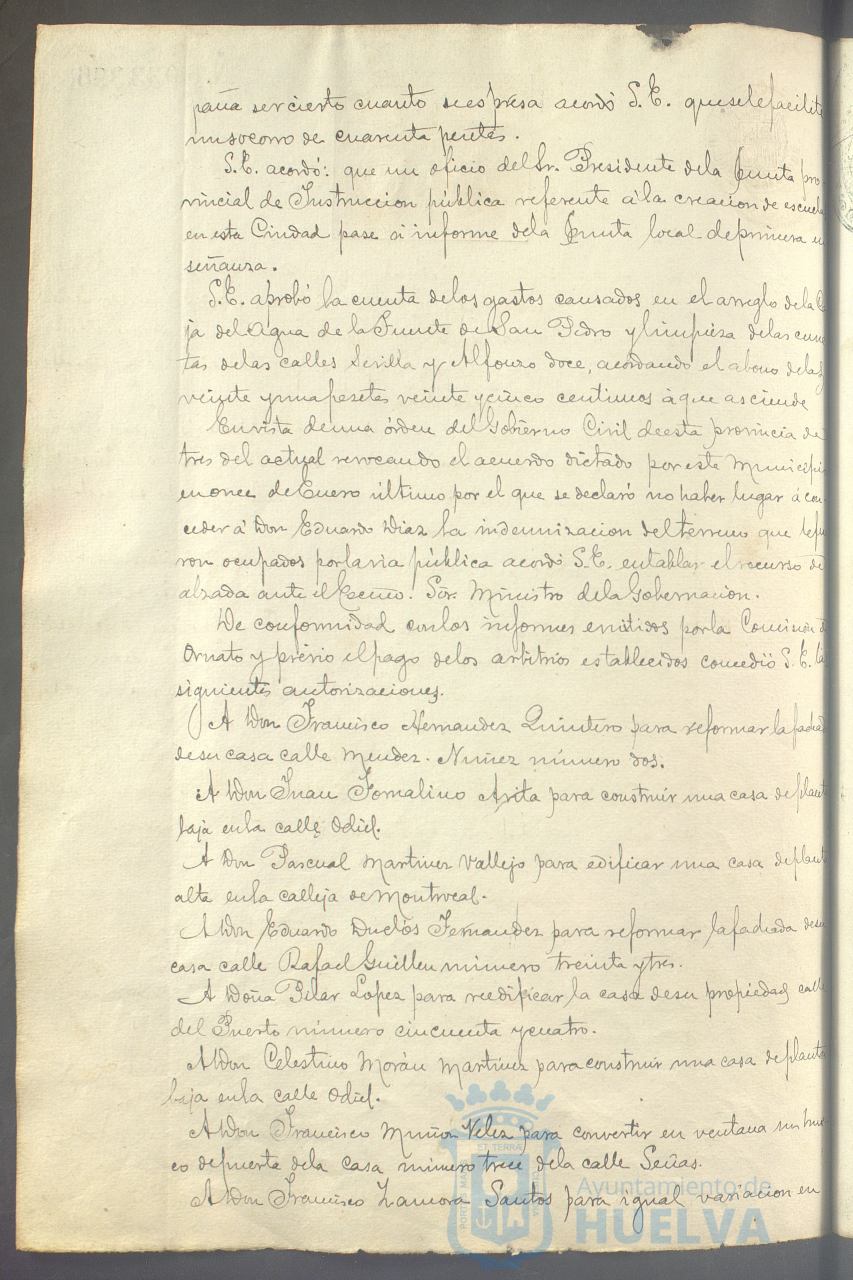 paña ser cierto cuanto se espresa acordó S.E. que se le facilite
un socorro de cuarenta pesetas.
S.E. acordó: que un oficio del Sr. Presidente de la Junta pro
vincial de Instruccion pública referente á la creacion de escuela
en esta Ciudad pase á informe de la Junta local de primera en
señanza.
S.E. aprobó la cuenta de los gastos causados en el arreglo de la Ca
ja del Agua de la Fuente de San Pedro y limpieza de las cune
tas de las calles Sevilla y Alfonzo doce, acordando el abono de las
veinte y una pesetas veinte y cinco centimos á que asciende
En vista de una órden del Gobierno Civil de esta provincia de
tres del actual revocando el acuerdo dictado por este Municipio
en once de Enero último por el que se declaró no haber lugar á con
ceder á Don Eduardo Diaz la indemnizacion del terreno que le fue
ron ocupados por la via pública acordó S.E. entablar el recurso de
alzada ante el Excmo. Sor. Ministro de la Gobernacion.
De conformidad con los informes emitidos por la Comision de
Ornato y prévio el pago de los arbitrios establecidos concedió S.E. las
siguientes autorizaciones.
A Don Francisco Hernandez Quintero para reformar la fachada
de su casa calle Mendez-Nuñez número dos.
A Don Juan Fornalino Arita para construir una casa de planta
baja en la calle Odiel.
A Don Pascual Martinez Vallejo para edificar una casa de planta
alta en la calleja de Montrocal.
A Don Eduardo Duclós Fernandez para reformar la fachada de su
casa calle Rafael Guillen número treinta y tres.
A Doña Pilar Lopez para reedificar la casa de su propiedad calle
del Puerto número cincuenta y cuatro.
A Don Celestino Morán Martinez para construir una casa de planta
baja en la calle Odiel.
A Don Francisco Muñoz Velez para convertir en ventana un hue-
co de puerta de la casa número trece de la calle Señas.
A Don Francisco Zamora Santos para igual variacion en
Ayuntamiento de
HUELVA